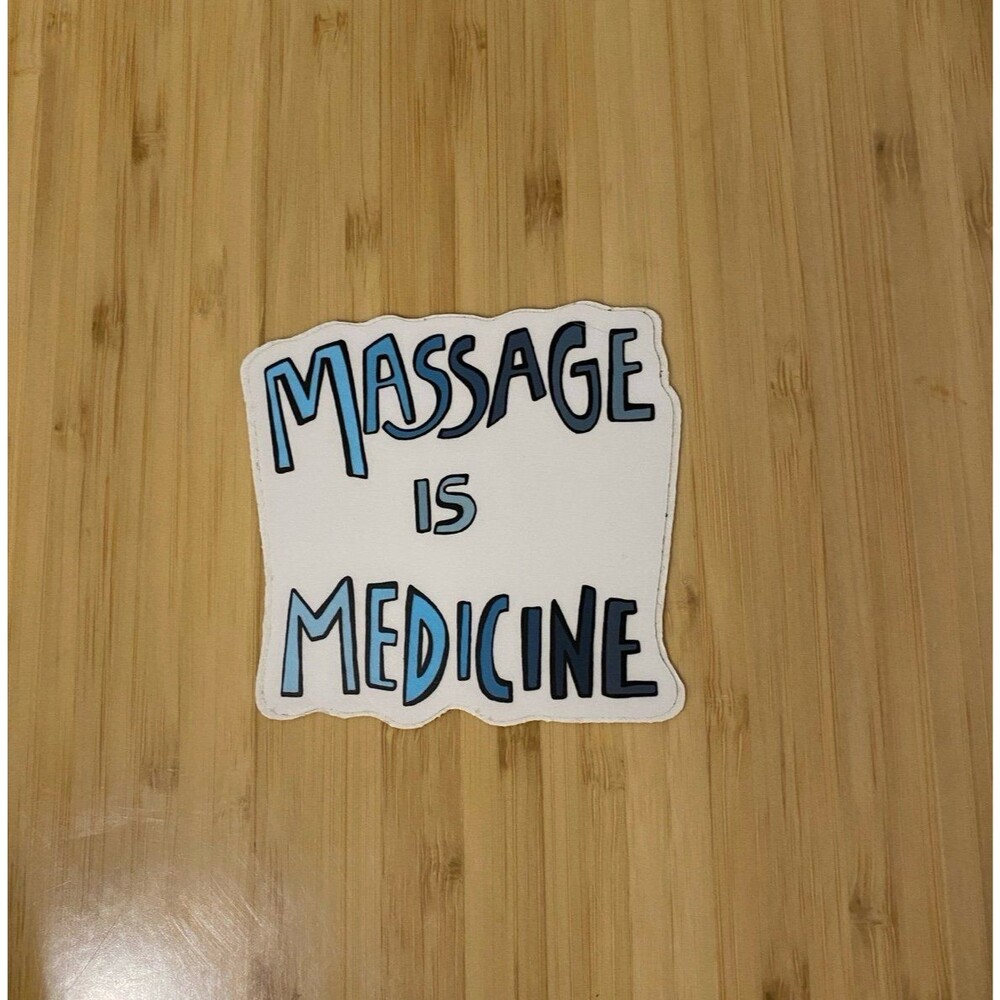 MASSAGE
IS
MEDICINE